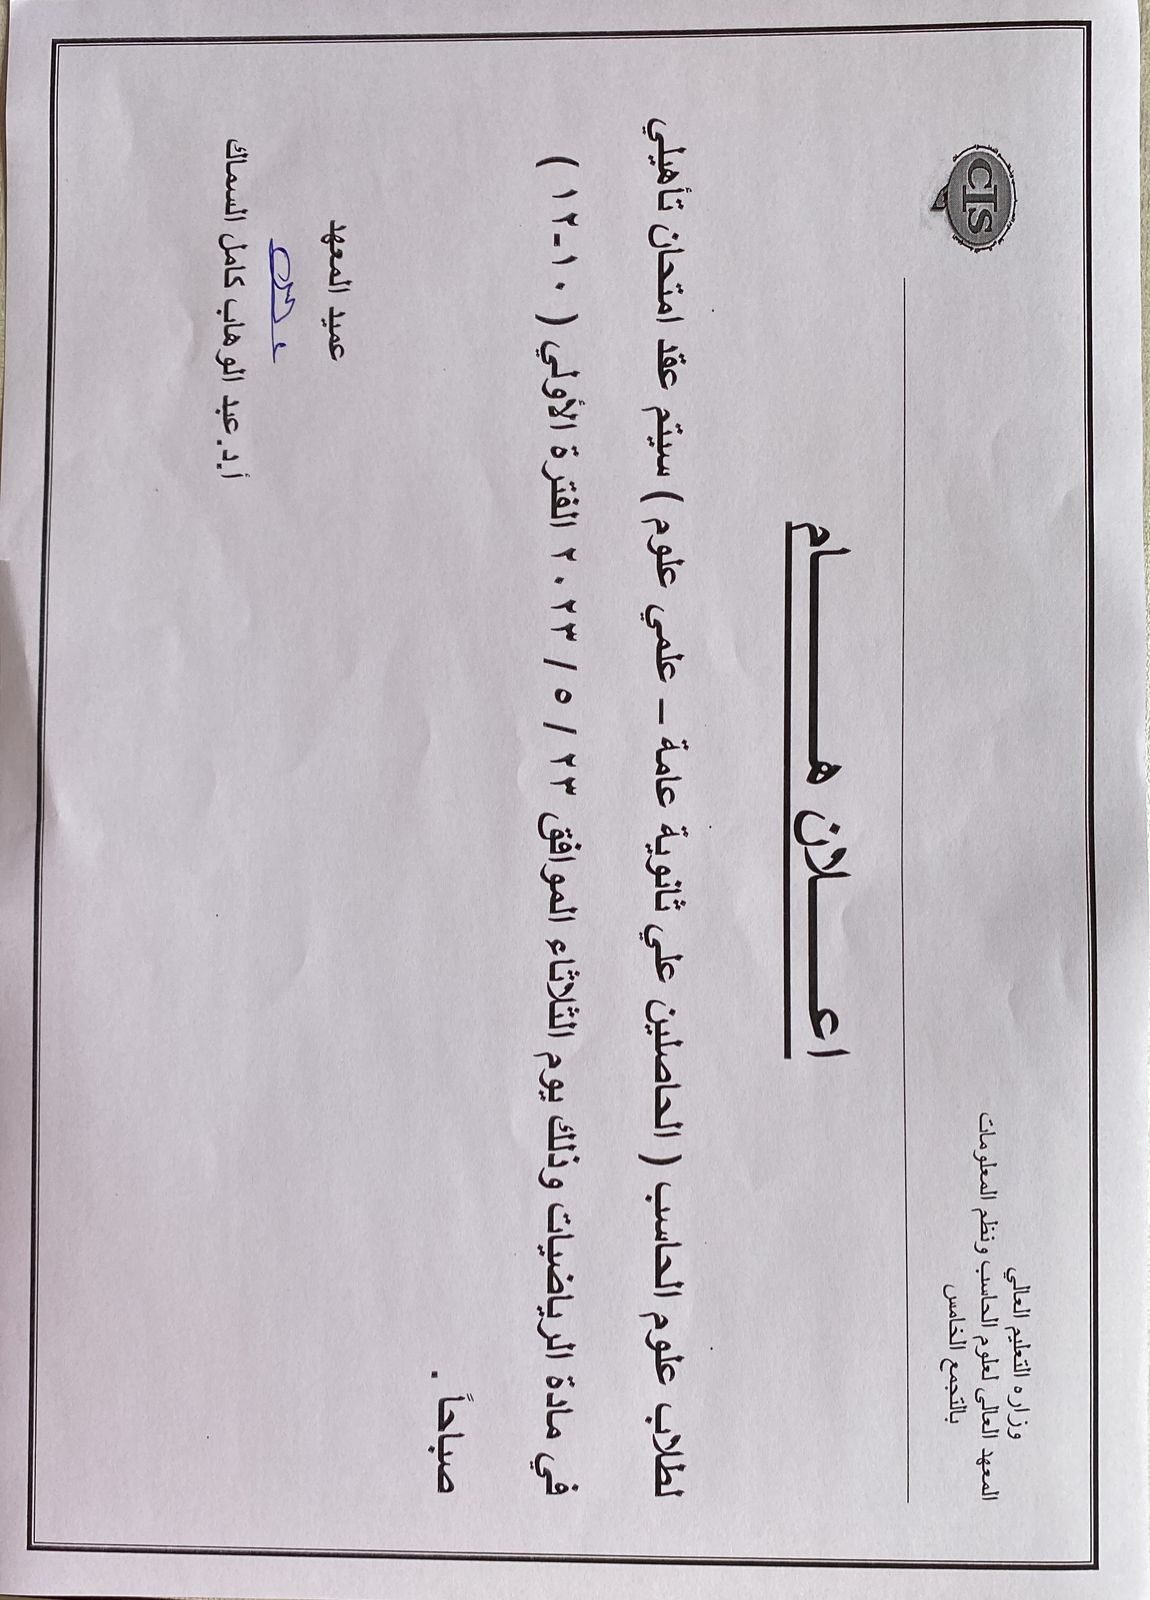 CIS
وزاره التعليم العالي
المعهد العالى لعلوم الحاسب ونظم المعلومات
بالتجمع الخامس
اعـــــلان هـــــــام
سيتم عقد امتحان تأهيلي لطلاب علوم الحاسب ( الحاصلين علي ثانوية عامة – علمي علوم )
في مادة الرياضيات وذلك يوم الثلاثاء الموافق ٢٣ / ٥ / ٢٠٢٣ الفترة الأولي ( ١٠-١٢ )
صباحاً .
عميد المعهد
أ.د.عبد الوهاب كامل السماك